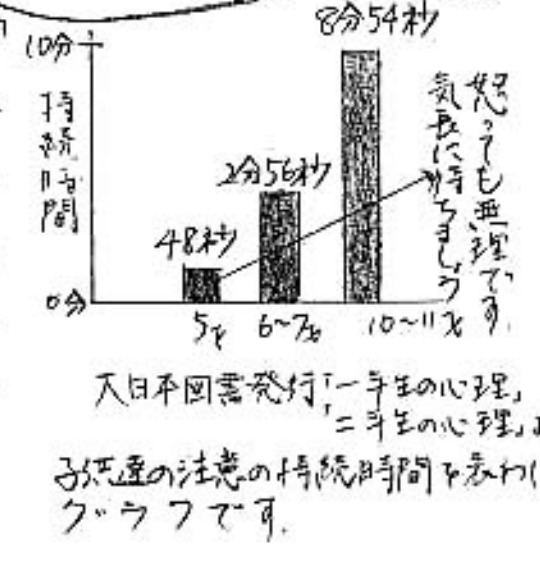 8分54秒
10分
持続時間
2分56秒
48秒
0分
5才
6~7才
10~11才
怒っても無理です。
気長に待ちましょう
大日本図書発行「一年生の心理」
「二年生の心理」
子供達の注意の持続時間を表わし
グラフです。